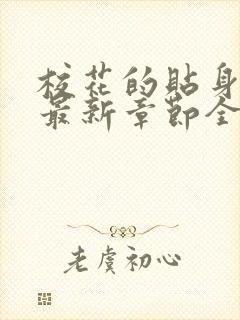 校花的贴身
最新章节全
老虞初心